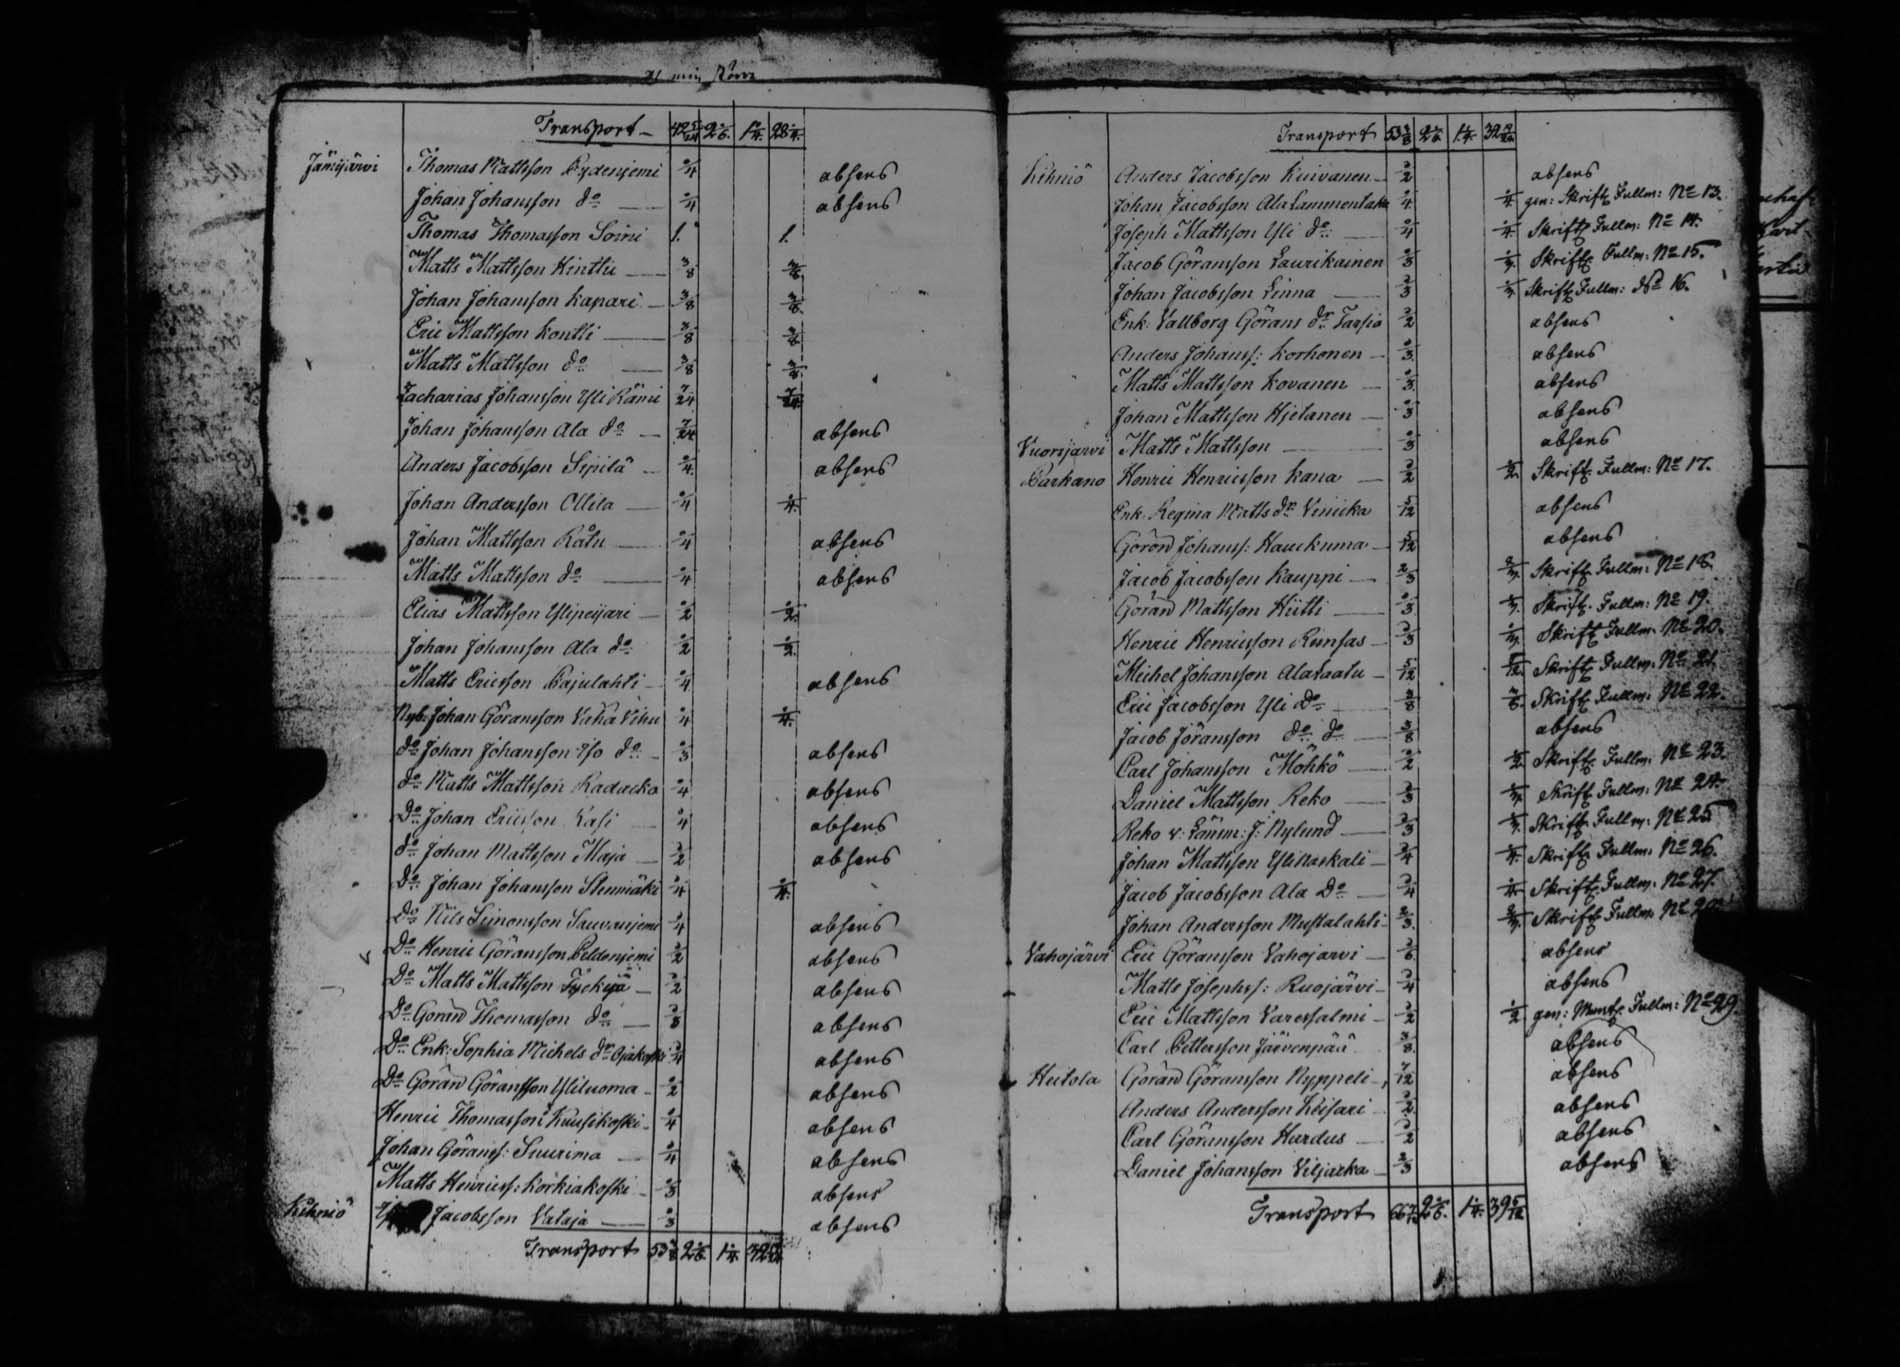 Transport 42 5/24 2 1/6. 1 1/4. 28 1/4.
Jämijärvi Thomas Mattsson Pydenjemi 1/4 absens
Johan Johansson do 1/4 absens
Thomas Thomasson Soini 1. 1.
Matts Mattsson Hinttu 3/8 3/8
Johan Johansson Kapari 3/8 3/8
Eric Mattsson Kontti 3/8 3/8
Matts Mattsson do 3/8 3/8
Zacharias Johansson Yli Rämi 7/24 7/24
Johan Johansson Ala do 7/24 absens
Anders Jacobsson Sipilä 1/4 absens
Johan Andersson Ollila 1/4 1/4
Johan Mattsson Rätu 1/4 absens
Matts Mattsson do 1/4 absens
Elias Mattsson Ylipeijari 1/2 1/2
Johan Johansson Ala do 1/2 1/2
Matts Ericsson Pajulahti 1/4 absens
Nyb: Johan Göransson Vähä Vihu 1/4 1/4
do Johan Johansson Iso do 1/3 absens
do Matts Mattsson Kadacko 1/4 absens
Do Johan Ericsson Kasi 1/4 absens
do Johan Mattsson Maja 1/2 absens
Do Johan Johansson 1/4 1/4
Do Nils Simonsson 1/4 absens
Do Henric Göransson Peldenjemi 1/2 absens
Do Matts Mattsson 1/2 absens
Do Göran Thomasson do 1/3 absens
Do Enk: Sophia Michels dr Ojakoski 1/4 absens
Do Göran Göransson Yliluoma 1/2 absens
Henric Thomasson Kuusikoski 1/4 absens
Johan Göranss: Suurima 1/4 absens
Matts Henricss: Körkiakoski 1/3 absens
Kihniö Jacobsson Vataja 1/3 absens
Transport 53 3/8 2 1/6. 1 1/4. 32
Transport 53 3/8 2 1/6 1 1/4 32
Kihniö Anders Jacobsson Kuivanen 1/2 absens
Johan Jacobsson Ala Lammentaka 1/4 1/4 gen: Skriftl: Fullm: No 13.
Joseph Mattsson Yli do 1/4 1/4 Skriftl: Fullm: No 14.
Jacob Göransson Laurikainen 1/3 1/3 Skriftl: Fullm: No 15.
Johan Jacobsson Linna 1/3 1/3 Skriftl: Fullm: No 16.
Enk: Vallborg Görans dr Tarsia 1/2 absens
Anders Johanss: Korhonen 1/3 absens
Matts Mattsson Kovanen 1/3 absens
Johan Mattsson Hjetanen 1/3 absens
Vuorijärvi Matts Mattsson 1/3 absens
Parkano Henric Henricsson Kana 1/2 1/2 Skriftl: Fullm: No 17.
Enk: Regina Matts dr Viniicka 5/12 absens
Göran Johanss: Hauckuma 5/12 absens
Jacob Jacobsson Kauppi 2/3 2/3 Skriftl: Fullm: No 18.
Göran Mattsson Hiitti 1/3 1/3 Skriftl: Fullm: No 19.
Henric Henricsson Runsas 1/3 1/3 Skriftl: Fullm: No 20.
Michel Johansson Ala Raatu 5/12 5/12 Skriftl: Fullm: No 21.
Eric Jacobsson Yli do 3/8 3/8 Skriftl: Fullm: No 22.
Jacob Jöransson do do 3/8 absens
Carl Johansson Möhkö 1/2 1/2 Skriftl: Fullm: No 23.
Daniel Mattsson Reko 1/3 1/3 Skriftl: Fullm: No 24.
Reko v: Länsm: J: Nylund 1/3 1/3 Skriftl: Fullm: No 25
Johan Mattsson Yli Naskali 1/4 1/4 Skriftl: Fullm: No 26.
Jacob Jacobsson Ala Do 1/4 1/4 Skriftl: Fullm: No 27.
Johan Andersson Mustalahti 2/3 2/3 Skriftl: Fullm: No 28.
Vahojärvi Eric Göransson Vahojarvi 1/6 absens
Matts Josephss: Ruojärvi 1/4 absens
Eric Mattsson Varessalmi 1/2 1/2 gen: Muntl: Fullm: No 29.
Carl Pettersson Järvenpää 3/8 absens
Heitola Göran Göransson Nyppeli 7/12 absens
Anders Andersson Keisari 1/2 absens
Carl Göransson Hurdus 1/2 absens
Daniel Johansson Viljacka 2/3 absens
Transport 66 7/12 2 1/6. 1 1/4. 39 5/12